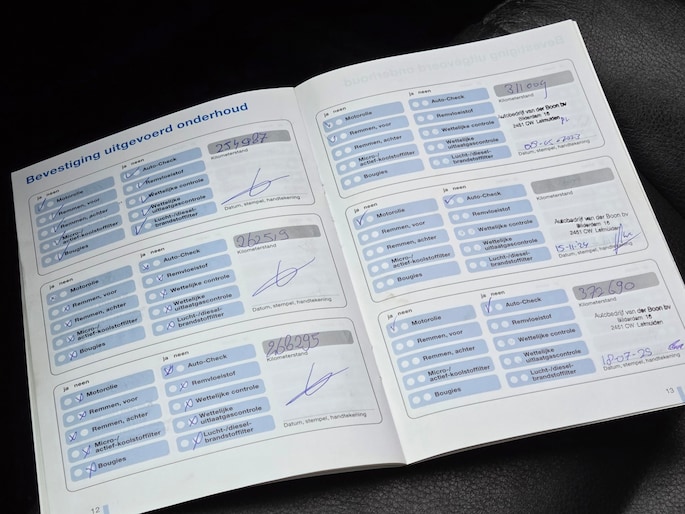 Bevestiging uitgevoerd onderhoud
ja neen
Motorolie
Remmen, voor
Remmen, achter
Micro-/
actief-koolstoffilter
Bougies
ja neen
Auto-Check
Remvloeistof
Wettelijke controle
Wettelijke
uitlaatgascontrole
Lucht-/diesel-
brandstoffilter
254987
Kilometerstand
Datum, stempel, handtekening
ja neen
Motorolie
Remmen, voor
Remmen, achter
Micro-/
actief-koolstoffilter
Bougies
ja neen
Auto-Check
Remvloeistof
Wettelijke controle
Wettelijke
uitlaatgascontrole
Lucht-/diesel-
brandstoffilter
262519
Kilometerstand
Datum, stempel, handtekening
ja neen
Motorolie
Remmen, voor
Remmen, achter
Micro-/
actief-koolstoffilter
Bougies
ja neen
Auto-Check
Remvloeistof
Wettelijke controle
Wettelijke
uitlaatgascontrole
Lucht-/diesel-
brandstoffilter
266295
Kilometerstand
Datum, stempel, handtekening
12
ja neen
Motorolie
Remmen, voor
Remmen, achter
Micro-/
actief-koolstoffilter
Bougies
ja neen
Auto-Check
Remvloeistof
Wettelijke controle
Wettelijke
uitlaatgascontrole
Lucht-/diesel-
brandstoffilter
311009
Kilometerstand
Autobedrijf van der Boon bv
Bilderdam 16
2451 CW Leimuiden
Datum, stempel, handtekening
ja neen
Motorolie
Remmen, voor
Remmen, achter
Micro-/
actief-koolstoffilter
Bougies
ja neen
Auto-Check
Remvloeistof
Wettelijke controle
Wettelijke
uitlaatgascontrole
Lucht-/diesel-
brandstoffilter
Kilometerstand
Autobedrijf van der Boon bv
Bilderdam 16
2451 CW Leimuiden
15-11-24
Datum, stempel, handtekening
ja neen
Motorolie
Remmen, voor
Remmen, achter
Micro-/
actief-koolstoffilter
Bougies
ja neen
Auto-Check
Remvloeistof
Wettelijke controle
Wettelijke
uitlaatgascontrole
Lucht-/diesel-
brandstoffilter
372690
Kilometerstand
Autobedrijf van der Boon bv
Bilderdam 16
2451 CW Leimuiden
18-07-25
Datum, stempel, handtekening
13